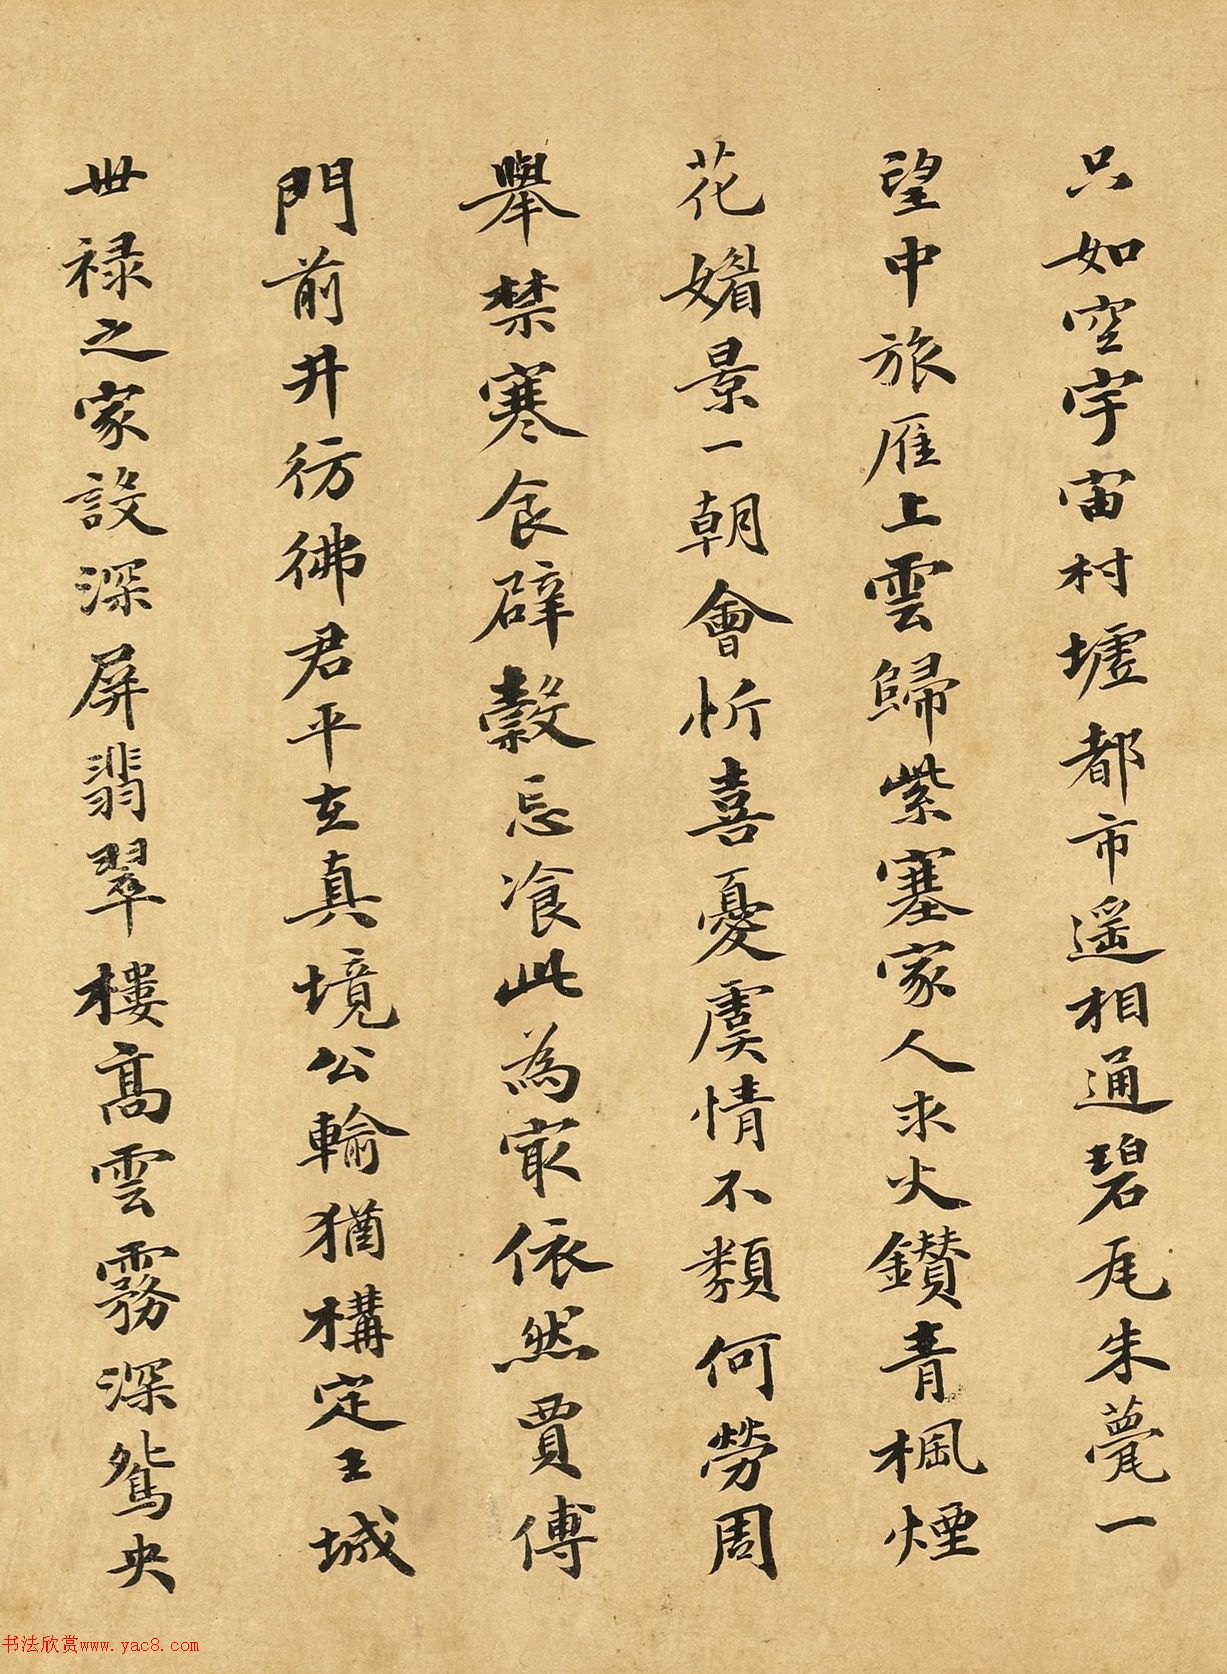 只如空宇宙村墟都市遥相通碧瓦朱甍一
望中旅雁上雲歸紫塞家人求火鑽青楓煙
花媚景一朝會忻喜憂虞情不類何勞周
舉禁寒食辟穀忘飡此為最依然賈傅
門前井彷彿君平在真境公輸猶構定王城
世禄之家設深屏翡翠樓髙雲霧深鴛央
书法欣赏www.yac8.com